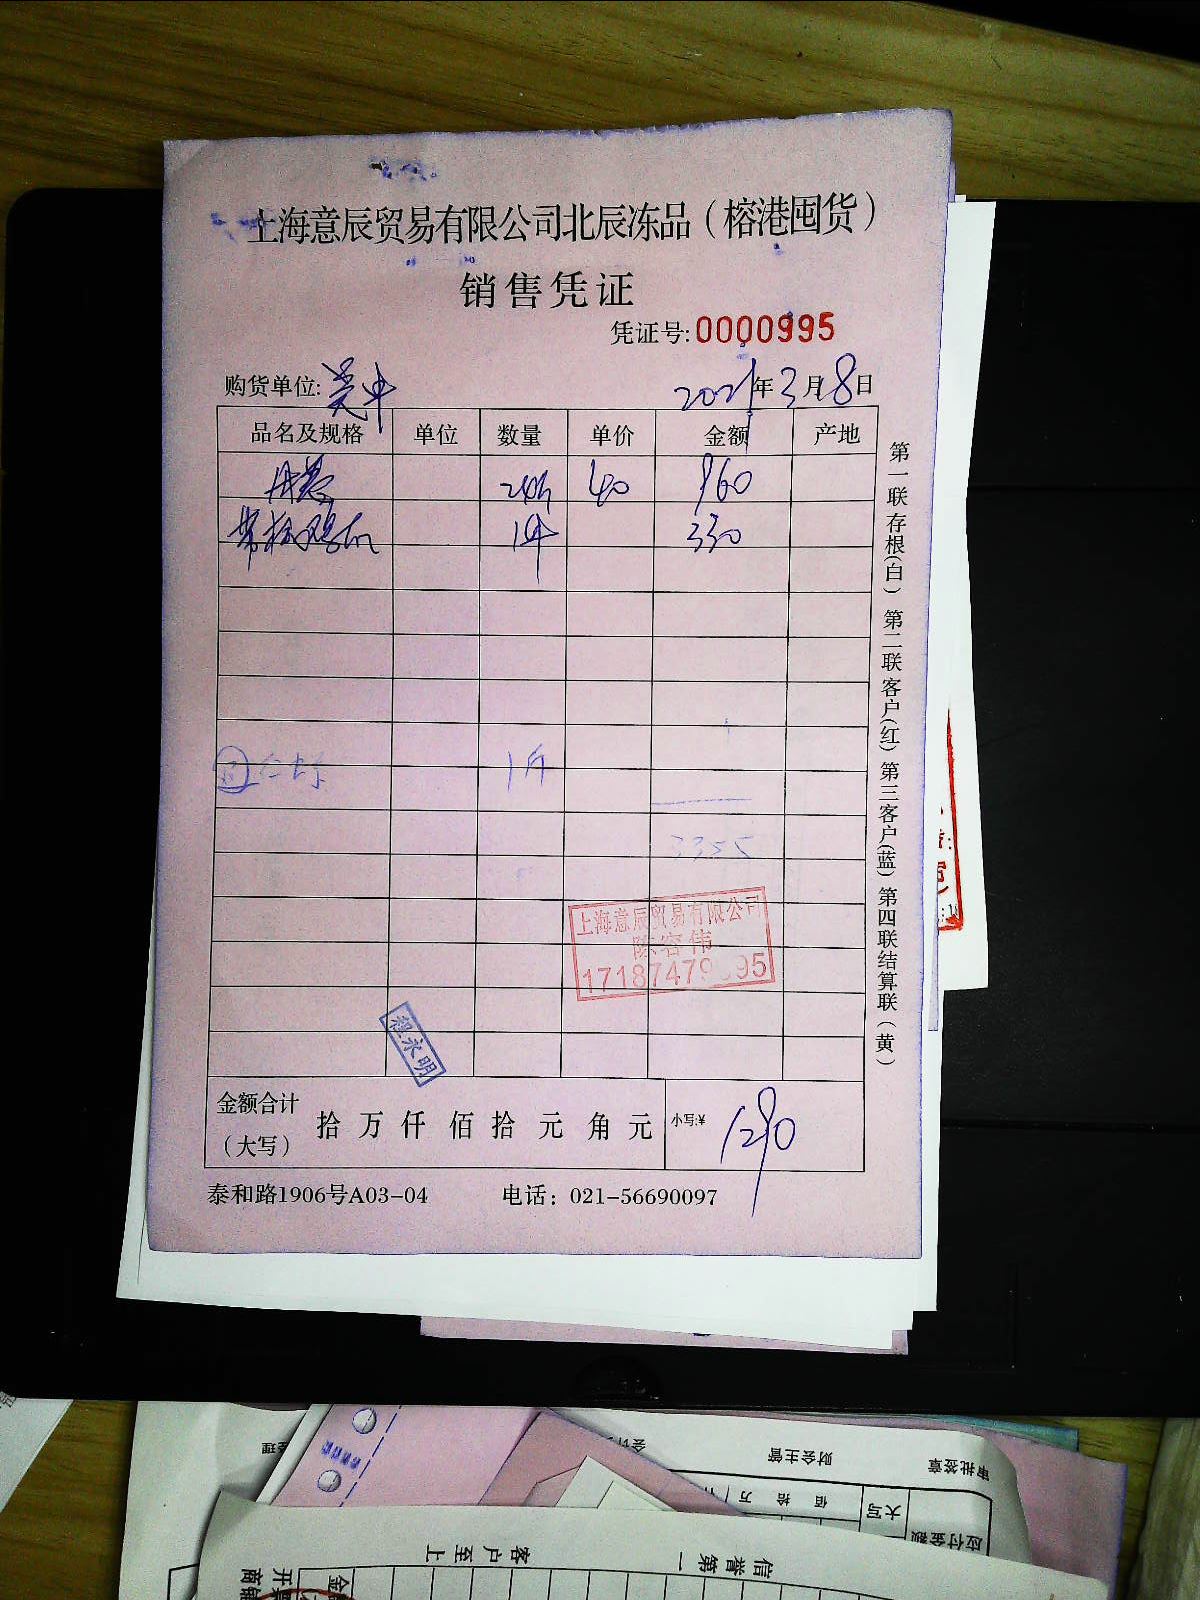 上海意辰贸易有限公司北辰冻品（榕港囤货）
销售凭证
凭证号:0000995
购货单位: 2021年3月8日
品名及规格 单位 数量 单价 金额 产地
40 960
330
1斤
3355
上海意辰贸易有限公司
陈容伟
程永明
金额合计
（大写） 拾 万 仟 佰 拾 元 角 元 小写:¥ 1290
泰和路1906号A03-04 电话：021-56690097
第一联存根(白) 第二联客户(红) 第三客户(蓝) 第四联结算联(黄)
审批签章 财会主管
应付金额 大写 佰 拾 万
信誉第一 客户至上